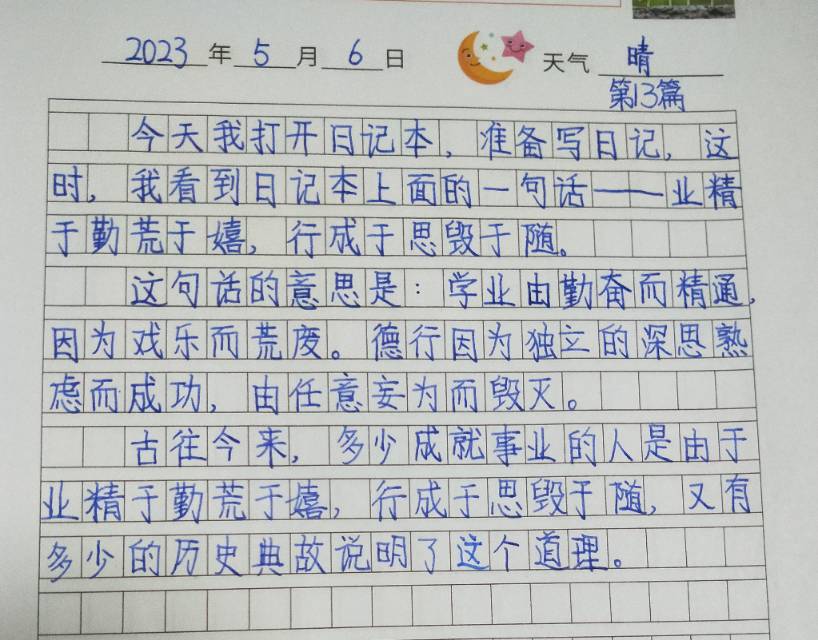 2023年5月6日 天气 晴
第13篇
今天我打开日记本，准备写日记，这
时，我看到日记本上面的一句话——业精
于勤荒于嬉，行成于思毁于随。
这句话的意思是：学业由勤奋而精通，
因为戏乐而荒废。德行因为独立的深思熟
虑而成功，由任意妄为而毁灭。
古往今来，多少成就事业的人是由于
业精于勤荒于嬉，行成于思毁于随，又有
多少的历史典故说明了这个道理。